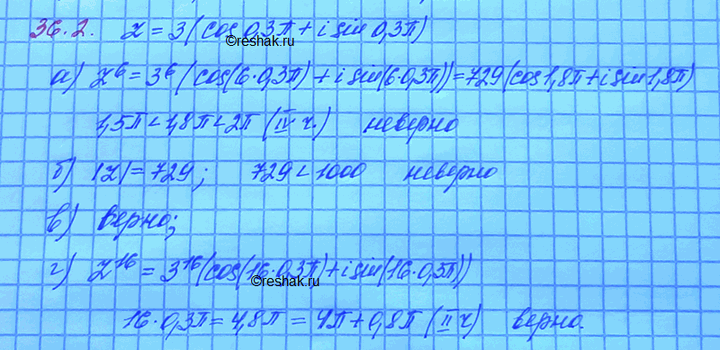 36.2. z = 3(cos 0,3π + i sin 0,3π)
©reshak.ru
а) z⁶ = 3⁶(cos(6·0,3π) + i sin(6·0,3π)) = 729(cos 1,8π + i sin 1,8π)
1,5π < 1,8π < 2π (IV ч.) неверно
б) |z| = 729; 729 < 1000 неверно
в) верно;
г) z¹⁶ = 3¹⁶(cos(16·0,3π) + i sin(16·0,3π))
©reshak.ru
16·0,3π = 4,8π = 4π + 0,8π (II ч) верно.